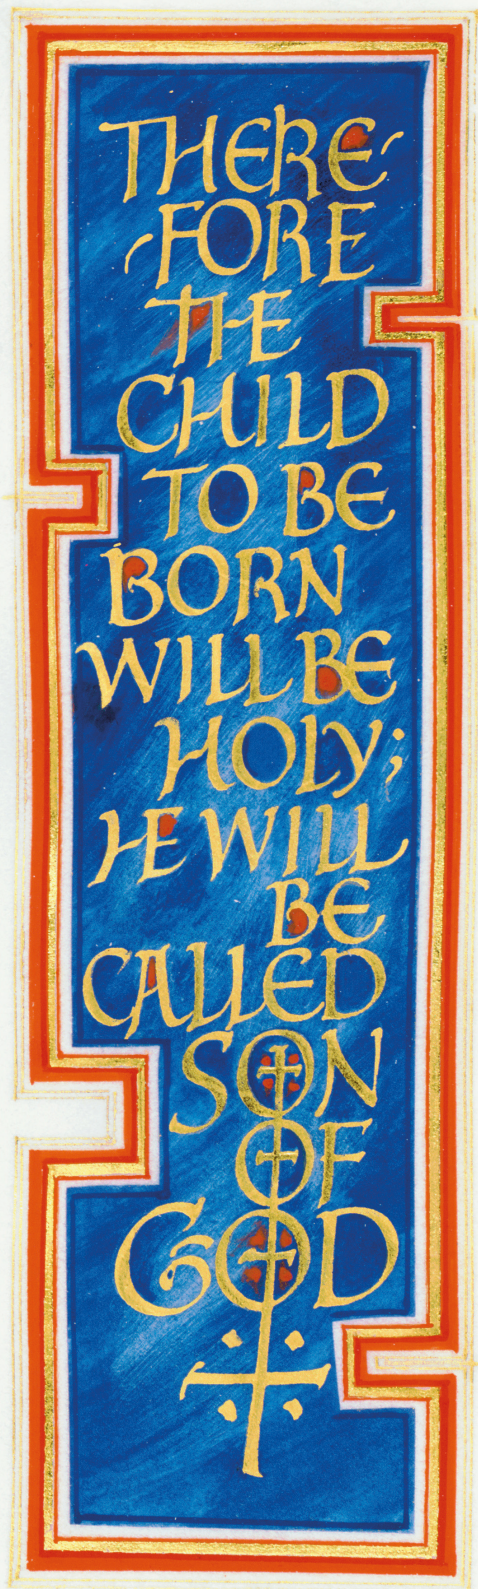 THERE-
-FORE
THE
CHILD
TO BE
BORN
WILL BE
HOLY;
HE WILL
BE
CALLED
SON
OF
GOD